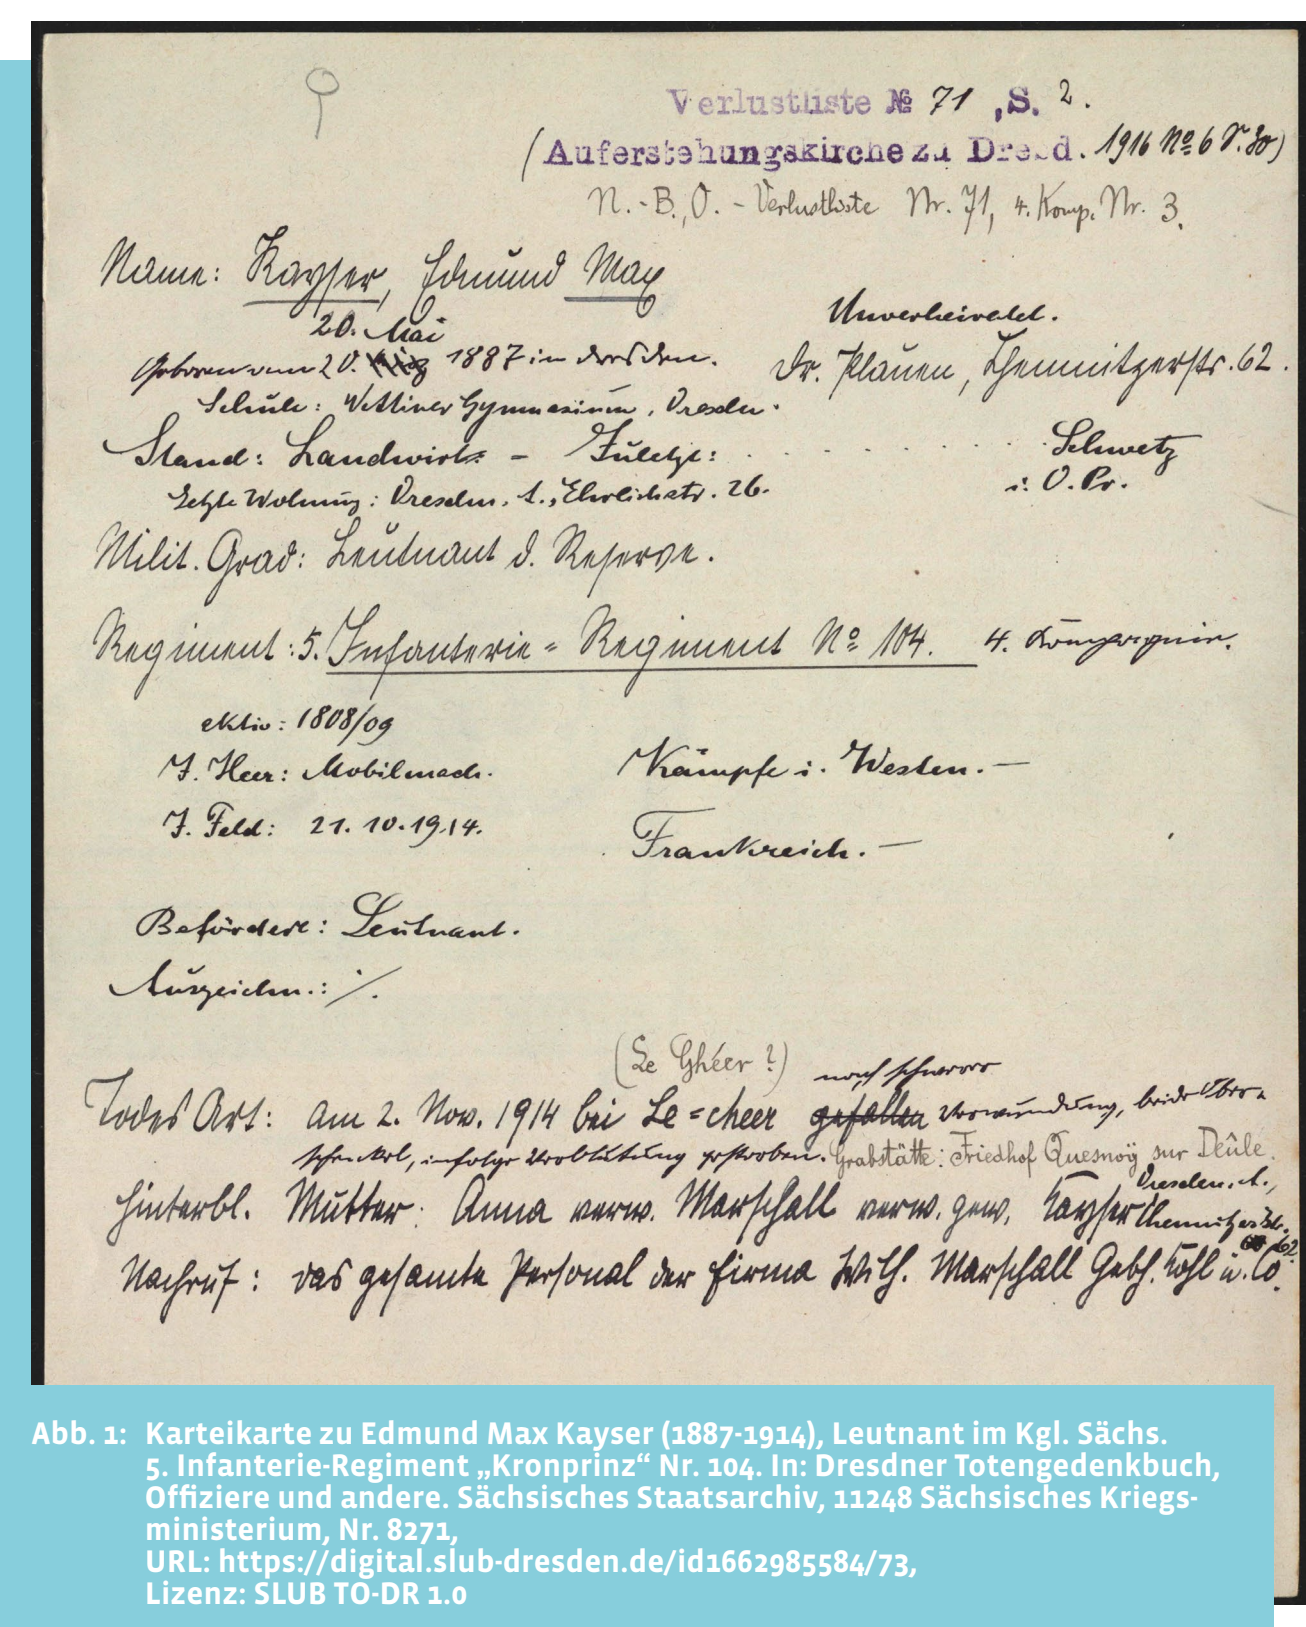 Verlustliste № 71, S. 2.
(Auferstehungskirche zu Dresd. 1916 No 6 S. 30)
N.-B., O. - Verlustliste Nr. 71, 4. Komp. Nr. 3.
Name: Kayser, Edmund Max
20. Mai
Unverheiratet.
Geboren am 20. 1887 in Dresden.
Dr. Plauen, Chemnitzerstr. 62.
Schule: Wettiner Gymnasium, Dresden.
Stand: Landwirt - Zuletzt: . . . . . . . Schwetz
i. O. Pr.
Letzte Wohnung: Dresden. A., Ehrlichstr. 26.
Milit. Grad: Leutnant d. Reserve.
Regiment: 5. Infanterie = Regiment No 104. 4. Kompagnie.
aktiv: 1808/09
I. Heer: Mobilmach. Kämpfe i. Westen. —
I. Feld: 21. 10. 1914. Frankreich. —
Befördert: Leutnant.
Auszeichn.: ·/.
(Le Ghéer ?) nach schwerer
Todes Art: am 2. Nov. 1914 bei Le=cheer gefallen Verwundung, beide Ober-
schenkel, infolge Verblutung gestorben. Grabstätte: Friedhof Quesnoÿ sur Deûle.
Dresden. A.,
Hinterbl. Mutter: Anna verw. Marschall verw. gew. Kayser Chemnitzerstr.
62
Nachruf: das gesamte Personal der Firma Wilh. Marschall Gebh. Kohl u. Co.
Abb. 1: Karteikarte zu Edmund Max Kayser (1887-1914), Leutnant im Kgl. Sächs.
5. Infanterie-Regiment „Kronprinz“ Nr. 104. In: Dresdner Totengedenkbuch,
Offiziere und andere. Sächsisches Staatsarchiv, 11248 Sächsisches Kriegs-
ministerium, Nr. 8271,
URL: https://digital.slub-dresden.de/id1662985584/73,
Lizenz: SLUB TO-DR 1.0